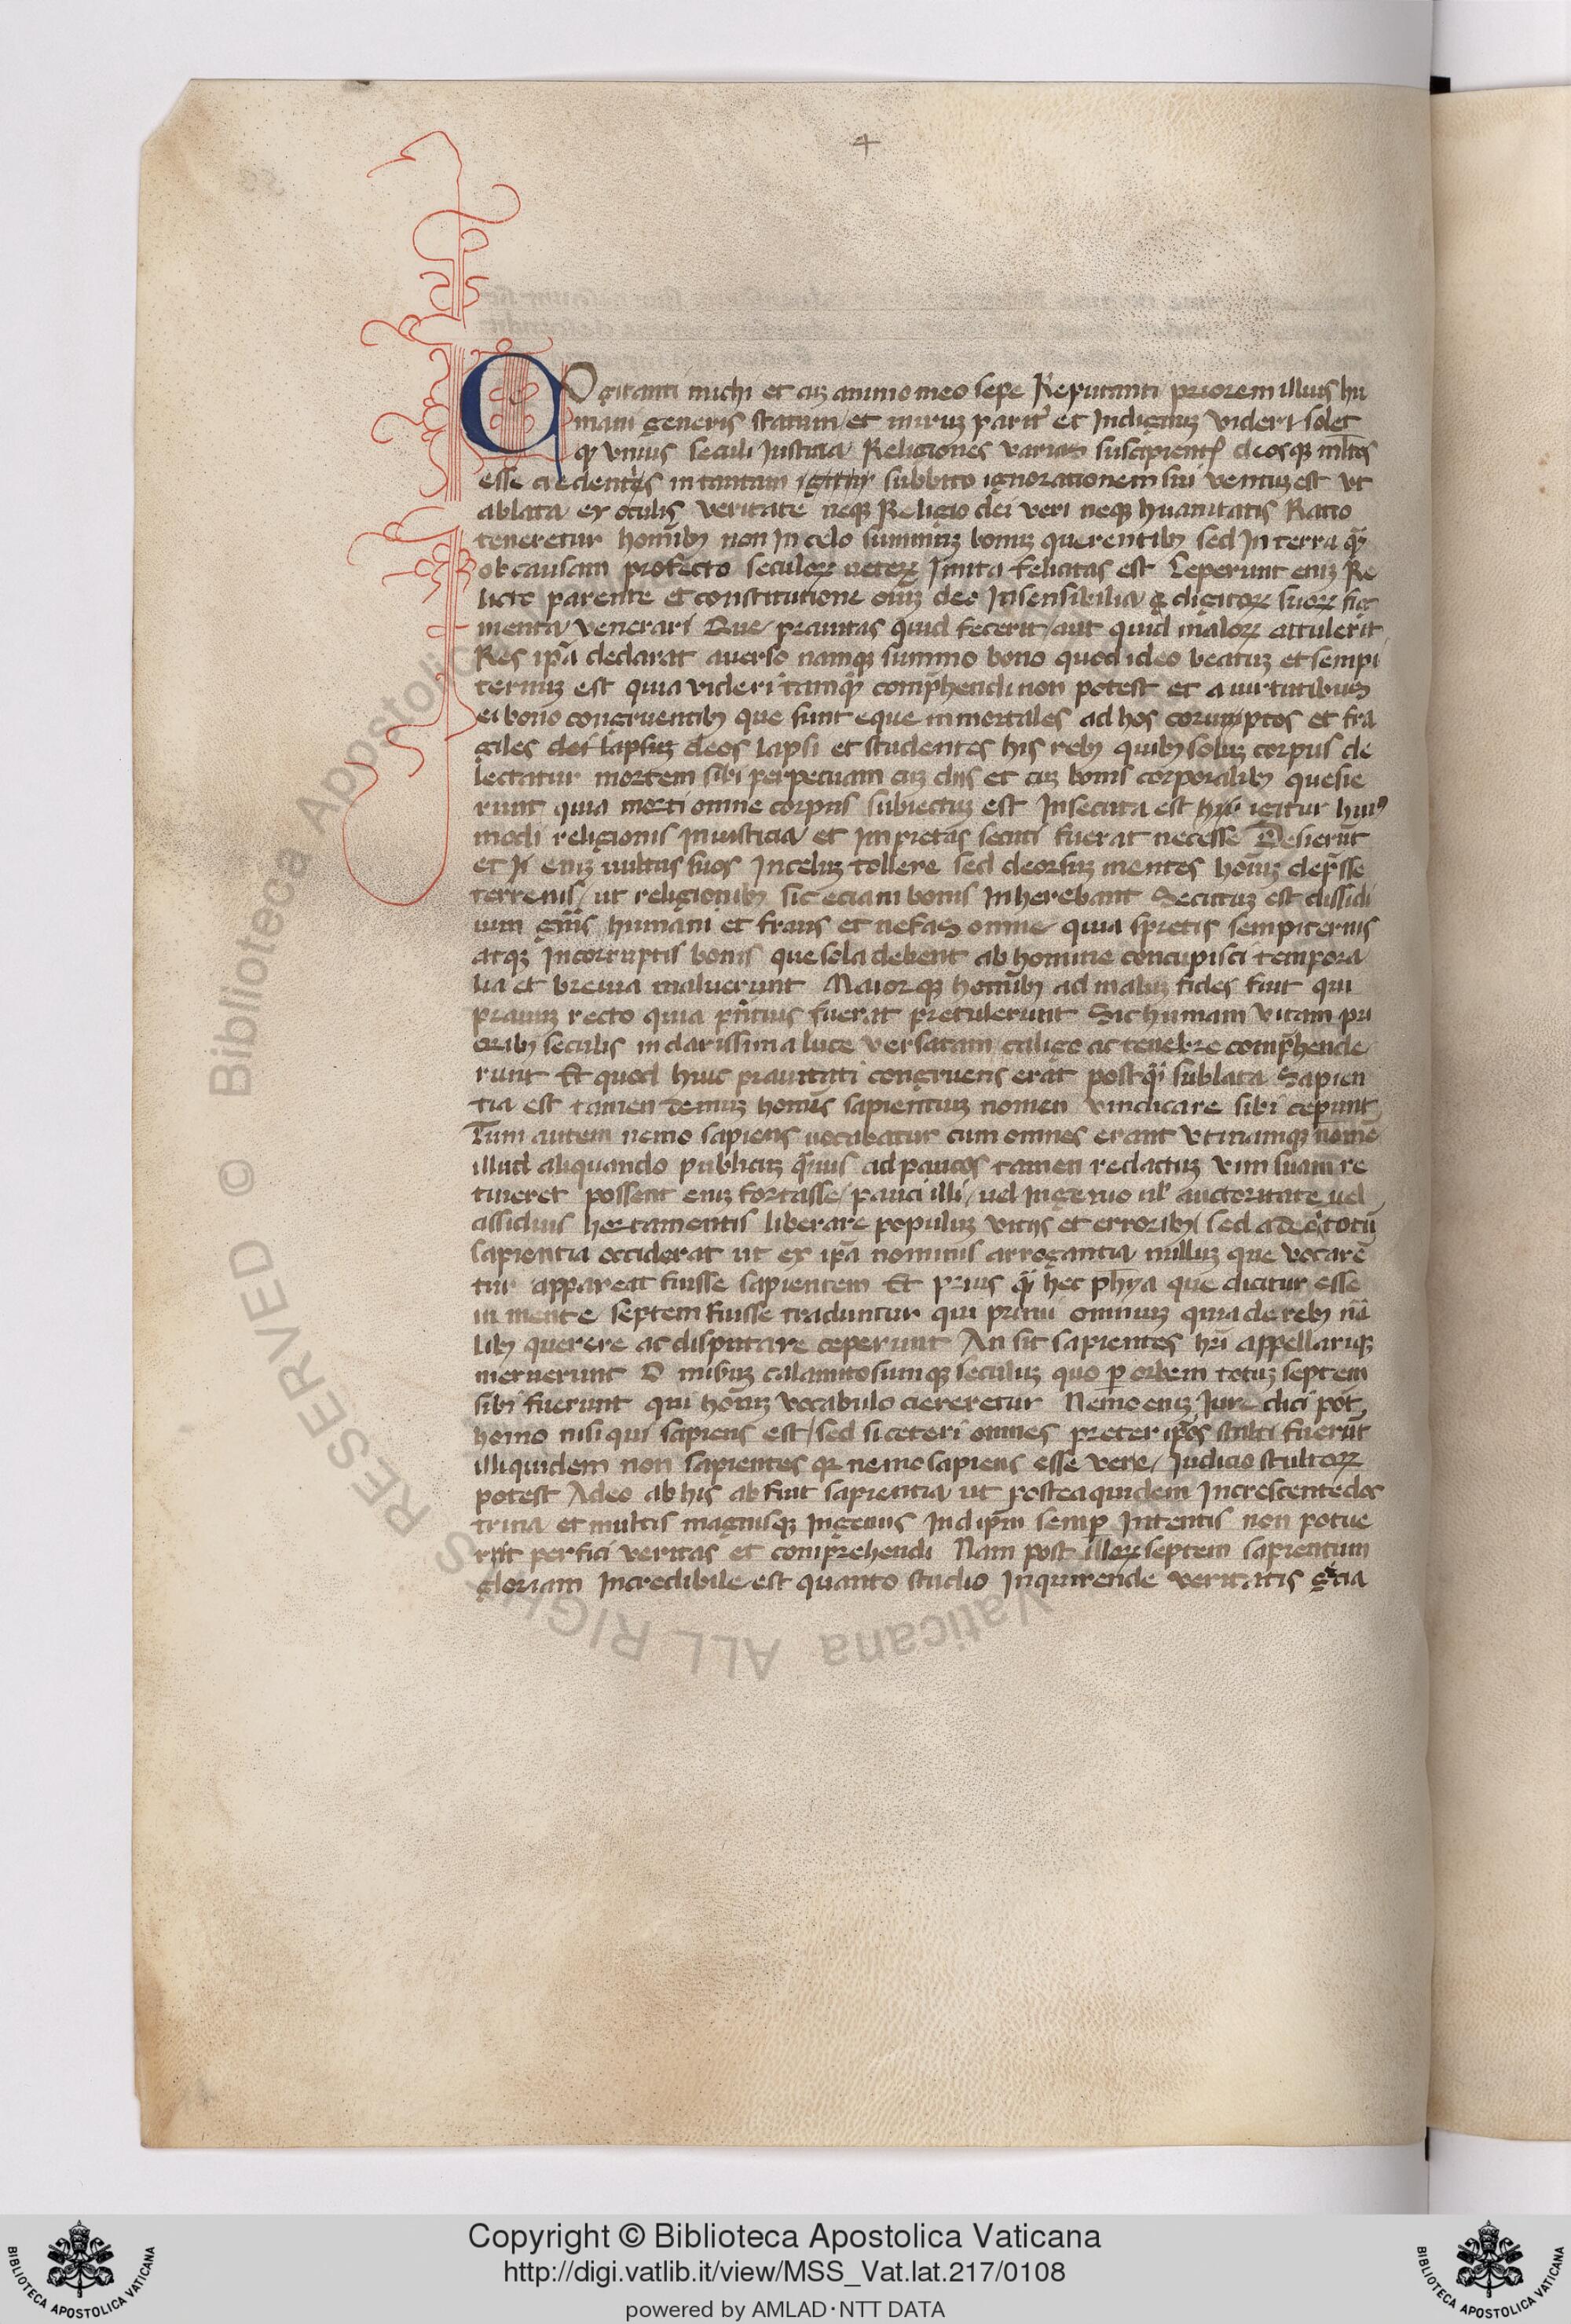 4
COgitanti michi et cuz animo meo sepe Reputanti priorem illius hu
mani generis statum / et miruz parit' et Indignuz videri solet
qꝫ vnius seculi Justitia Religiones varias suscipientꝭ deosqꝫ ml̄tos
esse credentes in tantam igitur subbito ignorationem sui ventuz est vt
ablata ex oculis veritate neqꝫ Religio dei veri neqꝫ huanitatis Ratio
teneretur homībꝫ non In celo summuz bonuz querentibꝫ sed In terra qͣ
ob causam profecto seculoꝝ ueteꝝ Imita felicitas est Ceperunt enīz Re
licto parente et constitutione oīuz deo Insensibilia digitoꝝ suoꝝ fig
menta venerari Que prauitas quid fecerit / aut quid maloꝝ attulerit
Res ip̄a declarat auerso namqꝫ summo bono quod ideo beatuz et sempi
ternuz est quia videri tamqͣ comp̄hendi non potest et a uirtutibus
ei bono congruentibꝫ que sunt eque inmortales ad hos coruuptos et fra
giles dei lapsuz deos lapsi et studentes his rebꝫ quibꝫ soluz corpus de
lectatur mortem sibi perpetuam cuz diis et cuz bonis corporalibꝫ quesie
runt quia morti omne corpus subiectuz est Insecuta est igitur huiꝰ
modi religionis Iniusticia et Impietas secuti fuerat necesse Desierūt
et Ji enīz uultus suos In celuz tollere sed deorsuz mentes hoīuz dep̄sse
terrenis / ut religionibꝫ sic eciam bonis Inherebant Secutuz est dissidi
ium gn̄is humani et fraus et nefas omne quia spretis sempiternis
atqꝫ Incorruptis bonis que sola debent ab homine concupisci tempora
lia et breuia maluerunt Maior qꝫ homībꝫ ad maluz fides fuit qui
prauuz recto quia p̄ntius fuerat pretulerunt Sic humam vitam pri
oribꝫ seculis in clarissima luce versatam caligo ac tenebre comp̄hende
runt Et quod huic prauitati congruens erat postqͣ sublata Sapien
tia est tamen demuz homīes sapientuz nomen vindicare sibi cepunt
Tum autem nemo sapiens uocabatur cum omnes erant vtinamqꝫ nomē
illud aliquando publicuz qͣuis ad paucos tamen redactuz vim suam re
tineret possent enīz fortasse / pauci illi / uel Ingenio ul̄ auctoritate uel
assiduis hortamentis liberare populuz vitijs et erroribꝫ / sed adeo totū
sapientia occiderat ut ex ip̄a nominis arrogantia nulluz que vocarē
tur appareat fuisse sapientem Et prius qͣ hec ph̄ya que dicitur esse
in mente / septem fuisse traduntur qui primi omniuz quia de rebꝫ nā
libꝫ querere ac disputare ceperunt An sit sapientes hr̄i appellariqꝫ
meruerunt O misuz calamitosumqꝫ seculuz quo ꝑ orbem totuz septem
sibi fuerunt qui hoīuz vocabulo ciereretur Nemo enīz Jure dici pōt
homo nisi qui sapiens est / sed si ceteri omnes preter ip̄os stulti fuerūt
illi quidem non sapientes qꝛ nemo sapiens esse vere / Judicio stultoꝝ
potest Adeo ab his ab fuit sapientia ut postea quidem Increscente doc
trina et multis magnisqꝫ Ingenijs Ind ip̄m semꝑ Intentis non potue
rit perfici veritas et comprehendi Nam post illoꝝ septem sapientum
gloriam Incredibile est quanto studio Inquirende veritatis gͣtia
© Biblioteca Apostolica Vaticana ALL RIGHTS RESERVED
BIBLIOTECA APOSTOLICA VATICANA
Copyright © Biblioteca Apostolica Vaticana
http://digi.vatlib.it/view/MSS_Vat.lat.217/0108
powered by AMLAD·NTT DATA
BIBLIOTECA APOSTOLICA VATICANA